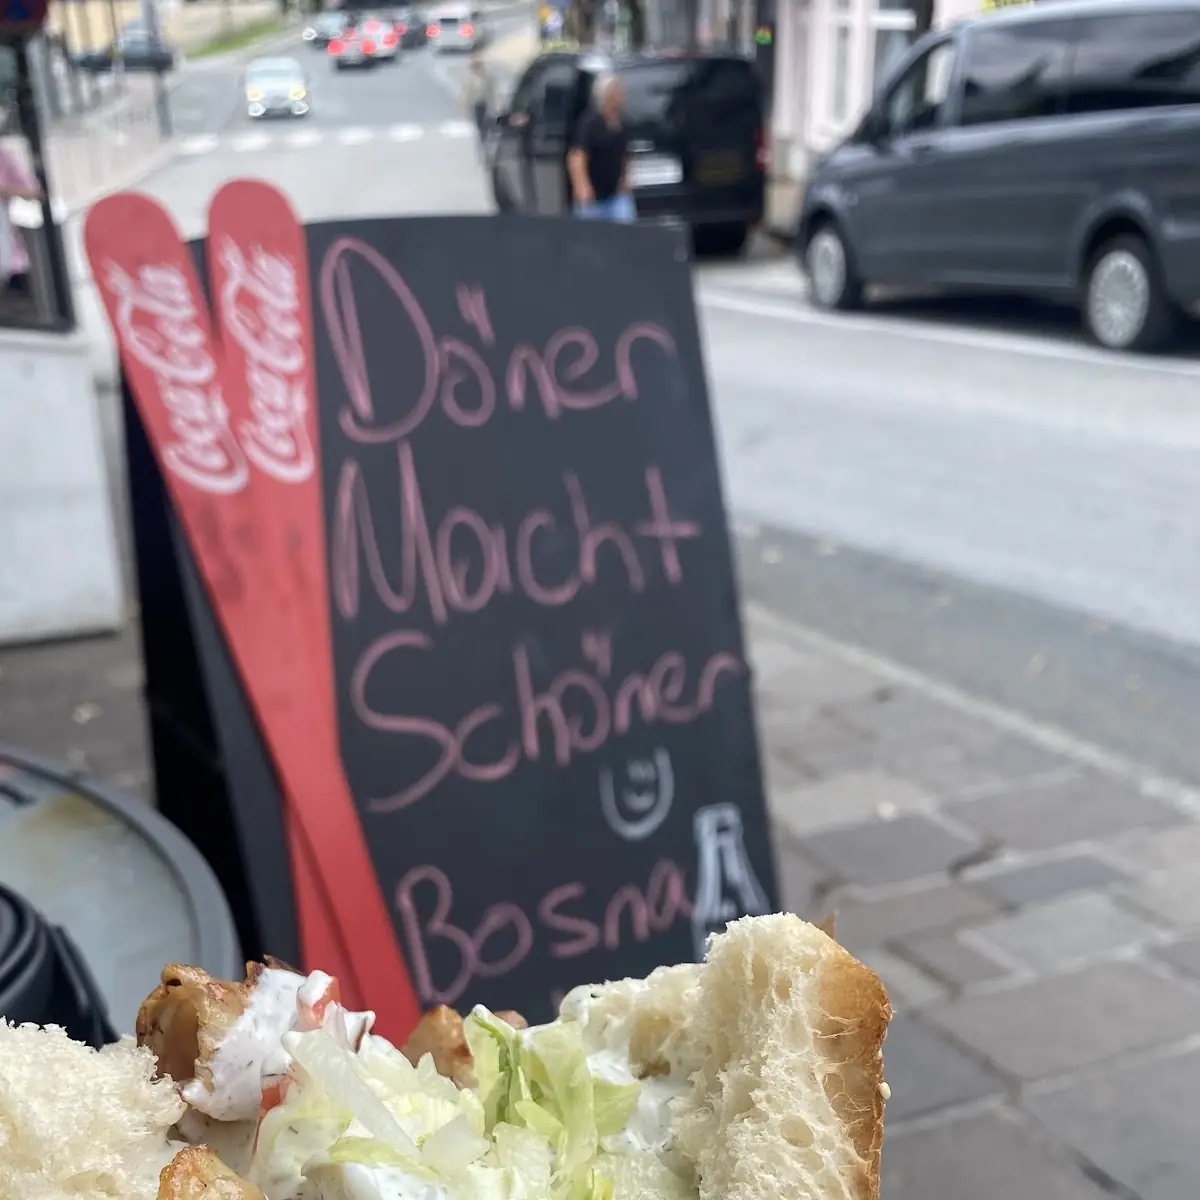 Coca-Cola
Coca-Cola
Döner
Macht
Schöner
Bosna